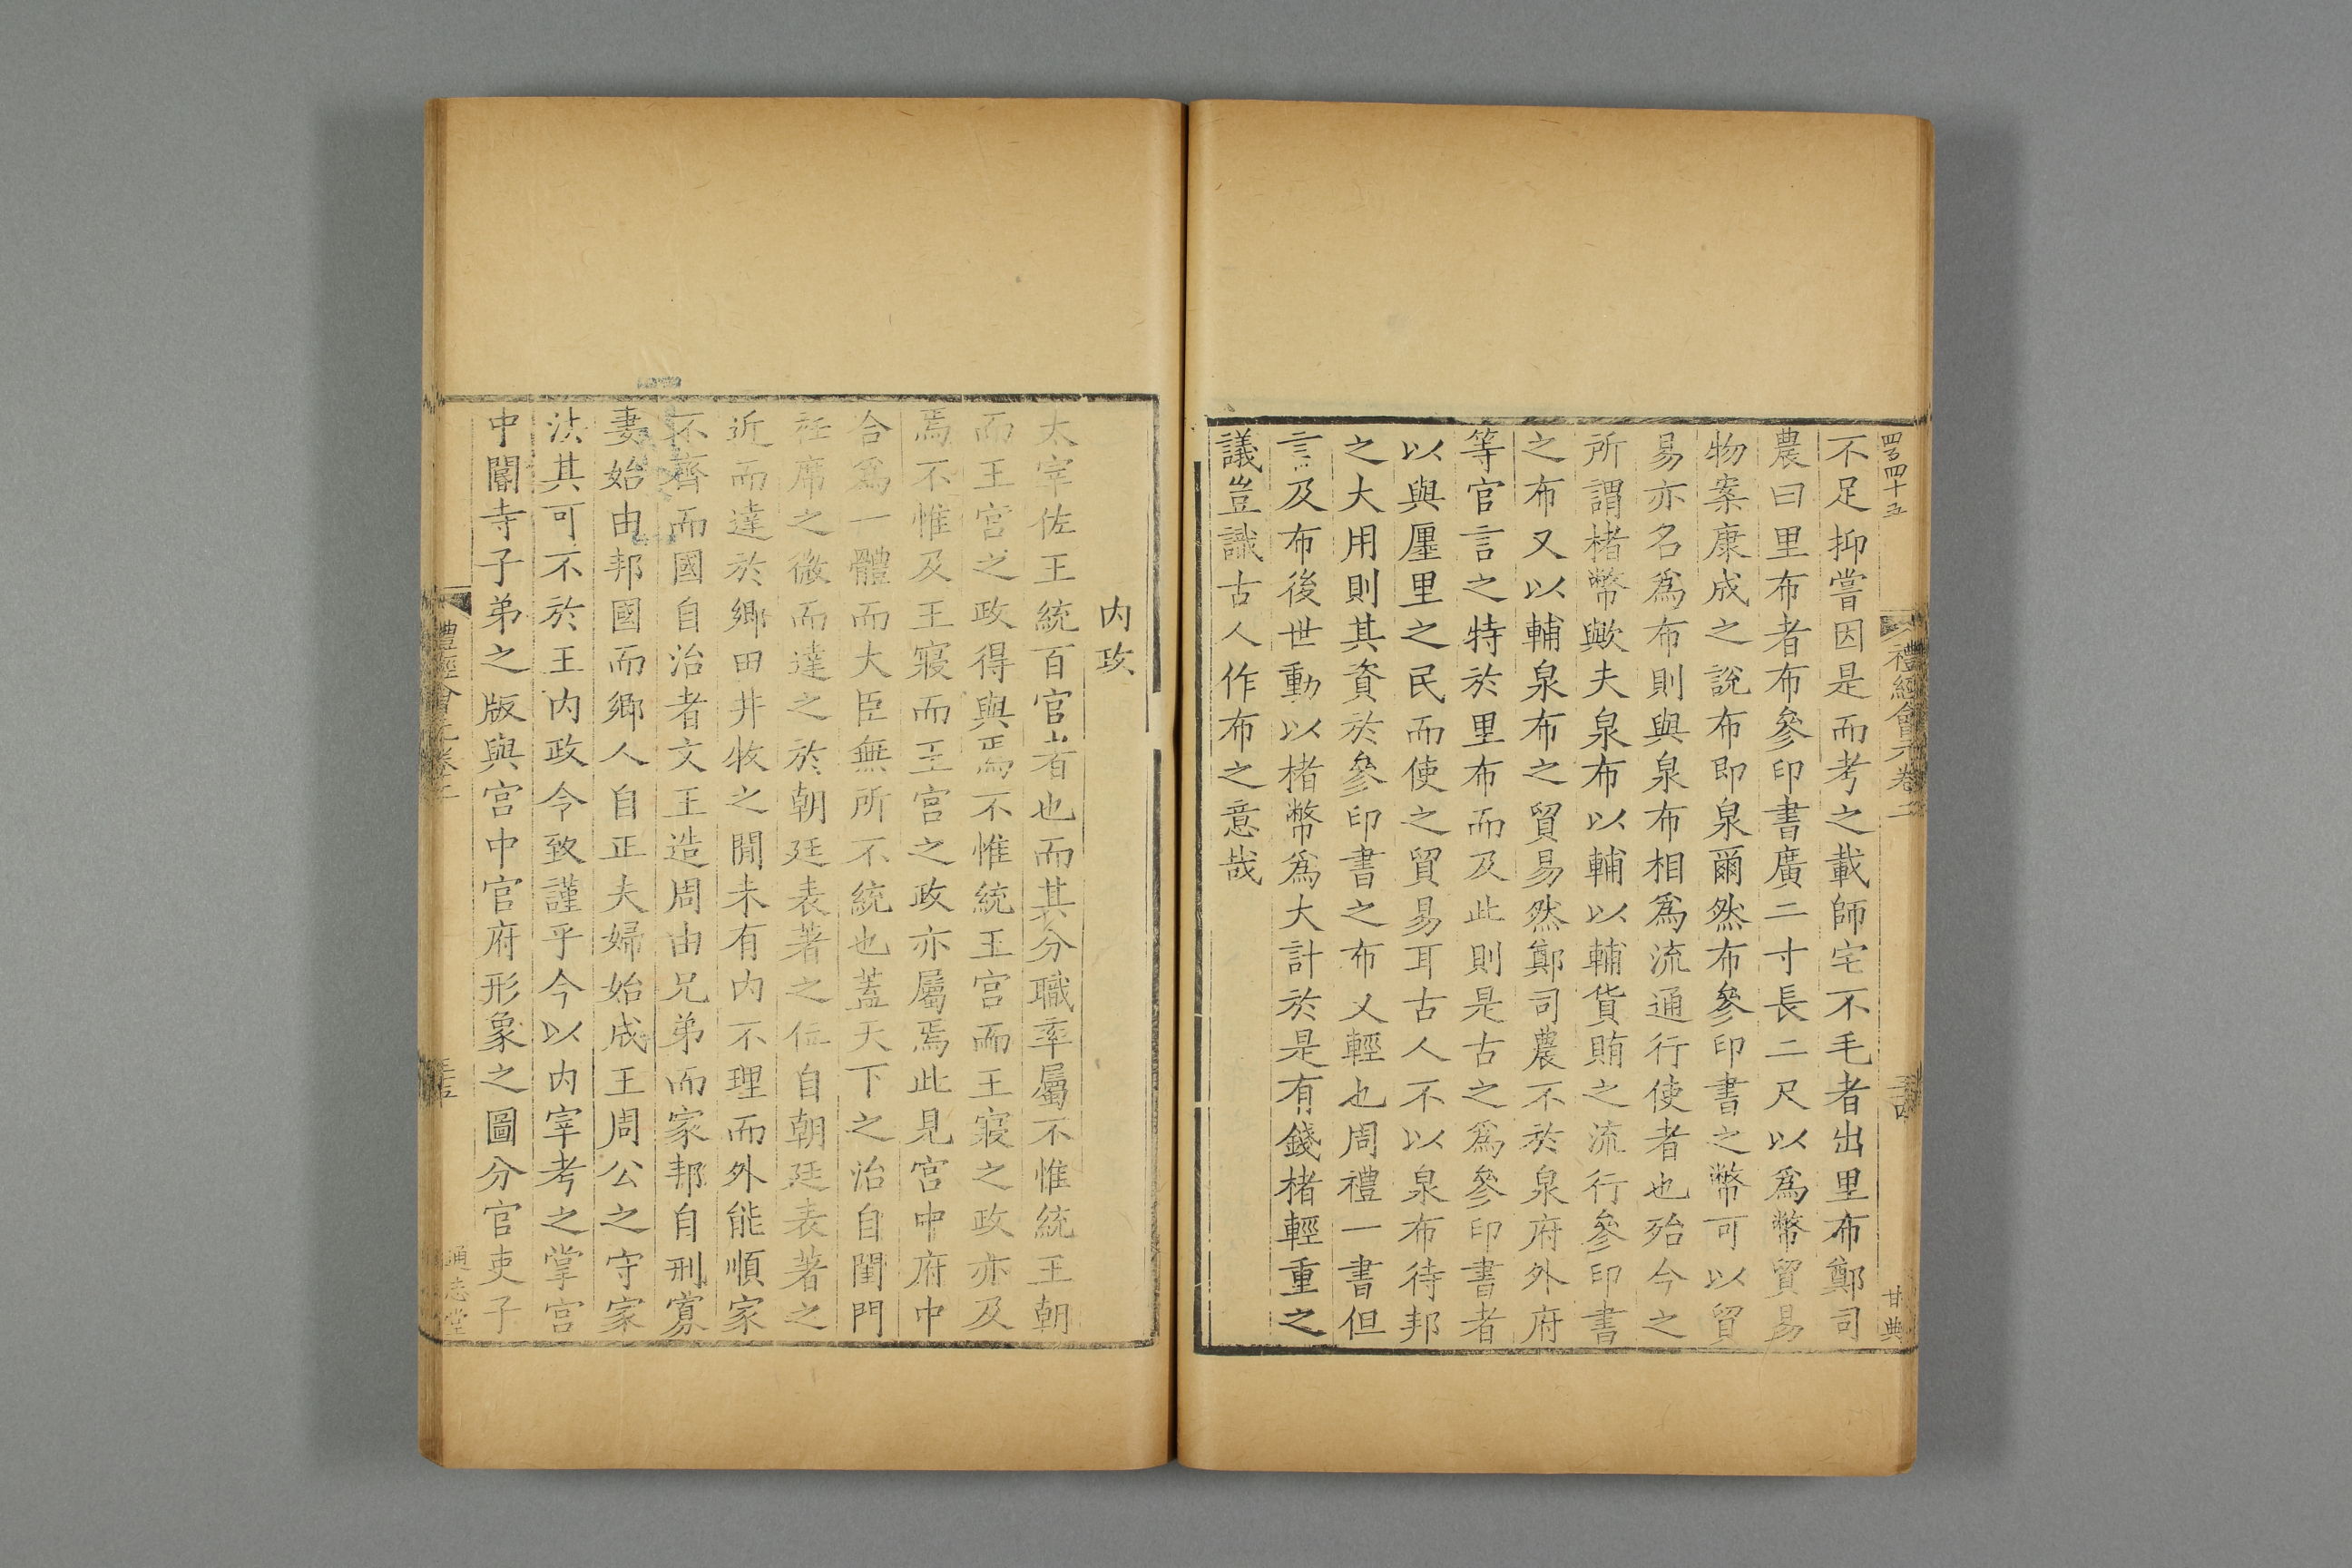 四百四十五
禮經會元卷二
甘典
不足抑嘗因是而考之載師宅不毛者出里布鄭司
農曰里布者布參印書廣二寸長二尺以爲幣貿易
物案康成之說布即泉爾然布參印書之幣可以貿
易亦名爲布則與泉布相爲流通行使者也殆今之
所謂楮幣歟夫泉布以輔以輔貨賄之流行參印書
之布又以輔泉布之貿易然鄭司農不於泉府外府
等官言之特於里布而及此則是古之爲參印書者
以與廛里之民而使之貿易耳古人不以泉布待邦
之大用則其資於參印書之布又輕也周禮一書但
言及布後世動以楮幣爲大計於是有錢楮輕重之
議豈識古人作布之意哉
内政
太宰佐王統百官者也而其分職率屬不惟統王朝
而王宮之政得與焉不惟統王宮而王寢之政亦及
焉不惟及王寢而王宮之政亦屬焉此見宮中府中
合爲一體而大臣無所不統也蓋天下之治自閨門
衽席之微而達之於朝廷表著之位自朝廷表著之
近而達於鄉田井牧之閒未有内不理而外能順家
不齊而國自治者文王造周由兄弟而家邦自刑寡
妻始由邦國而鄉人自正夫婦始成王周公之守家
法其可不於王内政令致謹乎今以内宰考之掌宮
中閽寺子弟之版與宮中官府形象之圖分官吏子
禮經會元卷二
通志堂